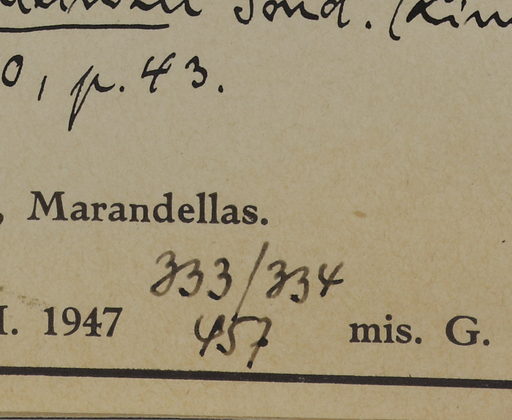 Sond. (Lin
0, p. 43.
, Marandellas.
333/334
I. 1947 457 mis. G.